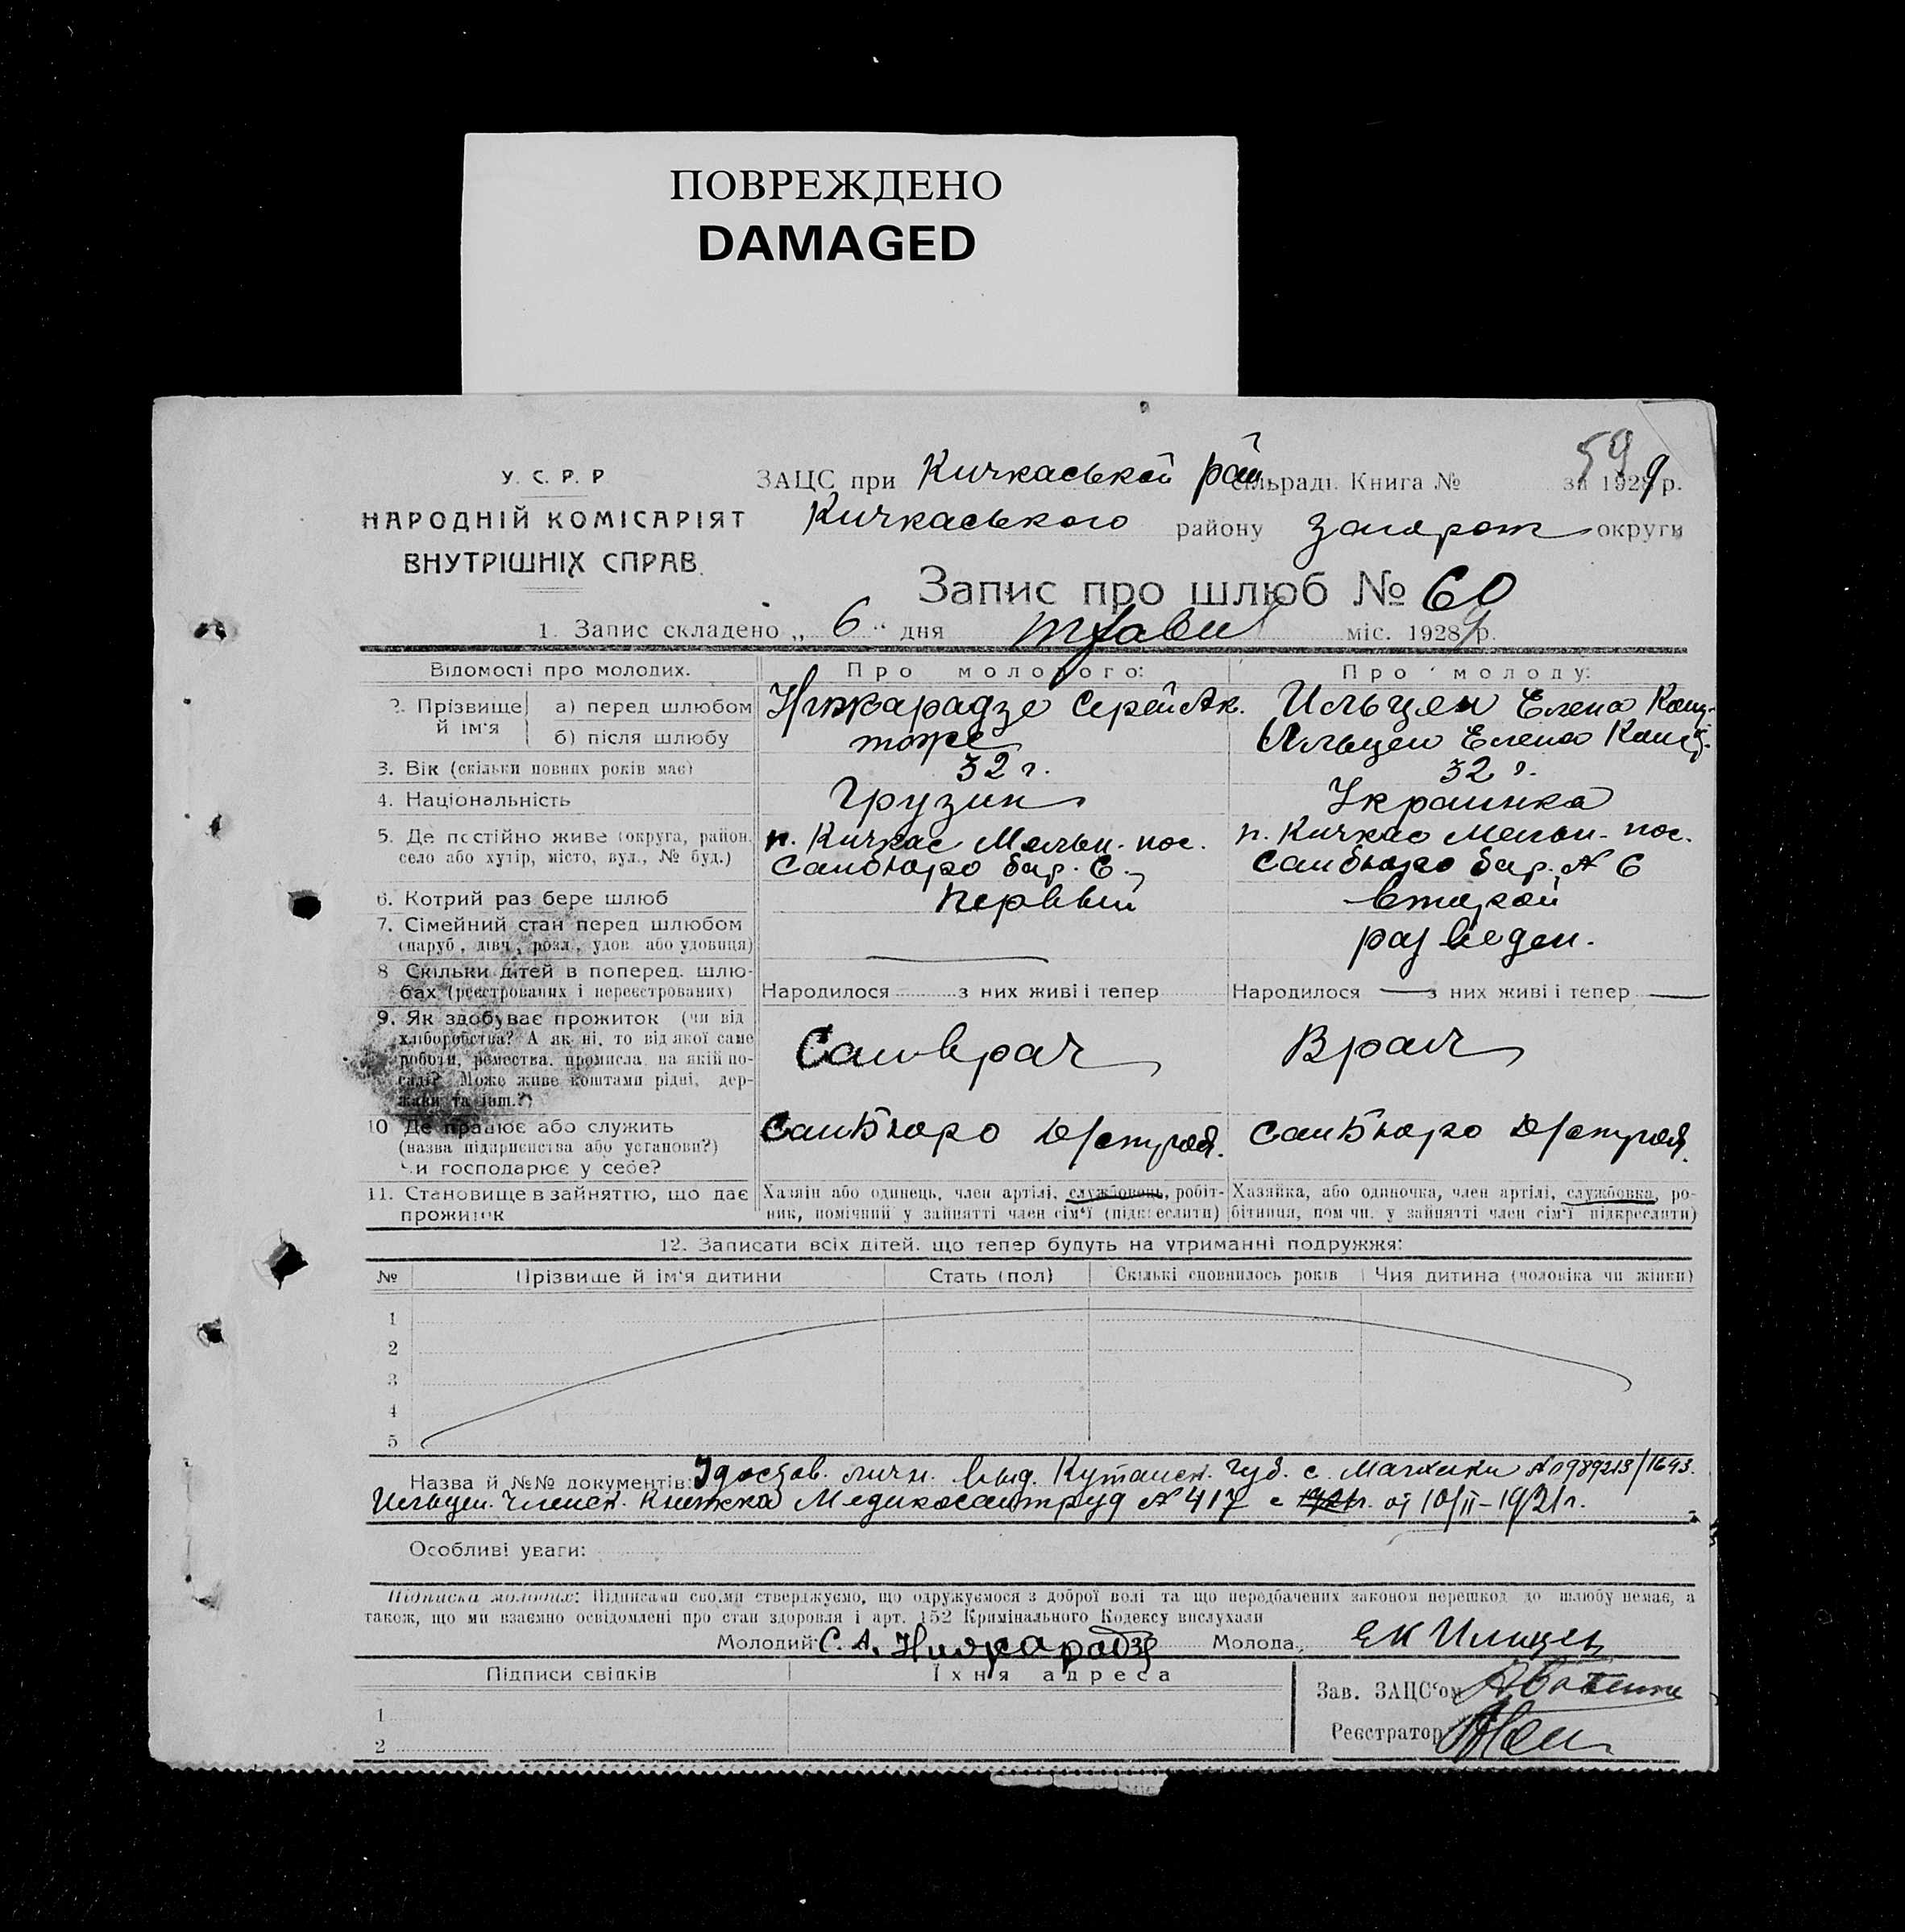 ПОВРЕЖДЕНО
DAMAGED
59
У. С. Р. Р
НАРОДНІЙ КОМІСАРІЯТ
ВНУТРІШНІХ СПРАВ.
ЗАЦС при Кичкаській рай сільраді. Книга № за 1929 р.
Кичкаського району Запорож округи
Запис про шлюб № 60
1. Запис складено „ 6 “ дня травня міс. 1929 р.
Відомості про молодих. Про молодого: Про молоду:
2. Прізвище й ім'я а) перед шлюбом Нижарадзе Сергей Ак. Ильцен Елена
б) після шлюбу тоже Ильцен Елена
3. Вік (скільки повних років має) 32 г. 32 г.
4. Національність Грузин Украинка
5. Де постійно живе (округа, район, п. Кичкас Мельн. пос. п. Кичкас Мельн. пос.
село або хутір, місто, вул., № буд.) Санбюро бар. 6 Санбюро бар. № 6
6. Котрий раз бере шлюб Первый второй
7. Сімейний стан перед шлюбом
(паруб., дівч., розл., удов. або удовиця) — разведен.
8 Скільки дітей в поперед. шлю-
бах (реєстрованих і нереєстрованих) Народилося з них живі і тепер Народилося — з них живі і тепер —
9. Як здобуває прожиток (чи від
хліборобства? А як ні, то від якої саме Санврач Врач
роботи, ремества, промисла, на якій по-
саді? Може живе коштами рідні, дер-
жави та інш.?)
10 Де працює або служить СанБюро Д/строя. СанБюро Д/строя.
(назва підприємства або установи?)
Чи господарює у себе?
11. Становище в зайняттю, що дає Хазяїн або одинець, член артілі, службовець, робіт- Хазяйка, або одиночка, член артілі, службовка, ро-
прожиток ник, помічний у зайнятті член сім'ї (підкреслити) бітниця, пом чн. у зайнятті член сім'ї підкреслити)
12. Записати всіх дітей, що тепер будуть на утриманні подружжя:
№ Прізвище й ім'я дитини Стать (пол) Скількі сповнилось років Чия дитина (чоловіка чи жінки)
1
2
3
4
5
Назва й №№ документів: Удостов. личн. выд. Кутаиск. Губ. с. № 1989213/1643.
Ильцен. Членск. Книжка Медикосантруд № 417 с 1921г. от 10/II-1921г.
Особливі уваги:
Підписка молодих: Підписами своїми стверджуємо, що одружуємося з доброї волі та що передбачених законом перешкод до шлюбу немає, а
також, що ми взаємно освідомлені про стан здоровля і арт. 152 Кримінального Кодексу вислухали
Молодий С. А. Нижарадзе Молода
Підписи свідків Їхня адреса
Зав. ЗАЦС'ом
1
Реєстратор
2